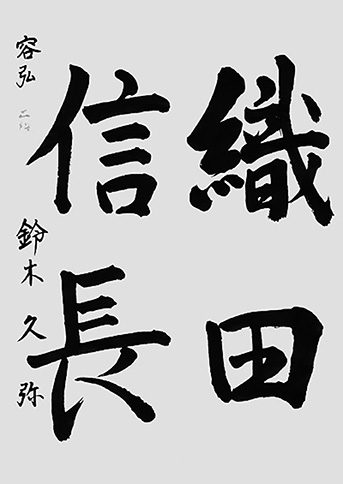 織田
信長
容弘
鈴木久弥